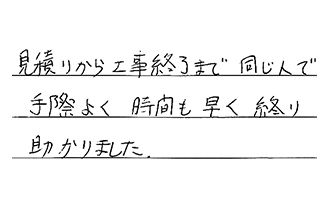 見積りから工事終了まで 同じ人で
手際よく 時間も 早く 終り
助かりました.